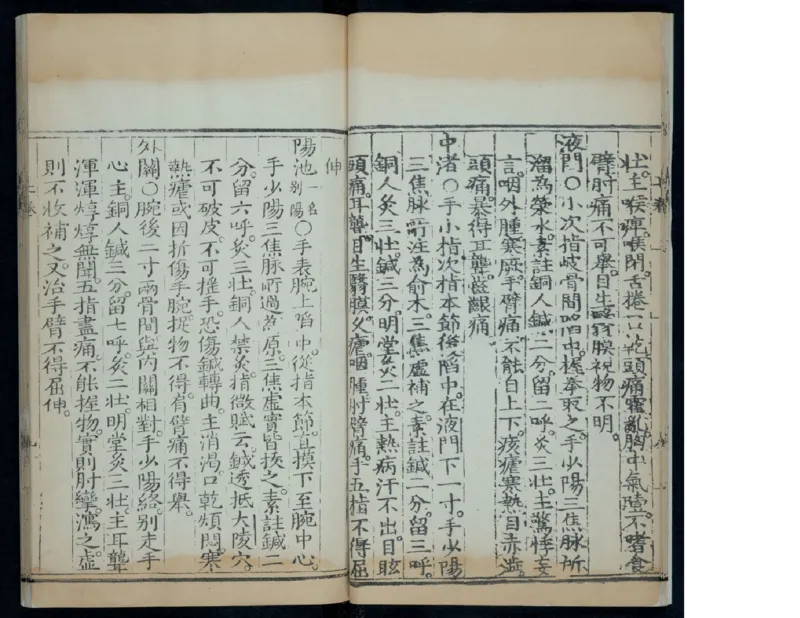 壯。主喉痺。喉閉舌捲口乾頭痛霍亂胸中氣噎。不嗜食
臂肘痛不可舉目生翳膜視物不明。
液門〇小次指歧骨間陷中。握拳取之。手少陽三焦脉所
溜為滎水。素註銅人鍼二分。留二呼。灸三壯。主驚悸妄
言。咽外腫寒厥。手臂痛不能自上下。痎瘧寒熱目赤澁。
頭痛。暴得耳聾。齒齦痛
中渚〇手小指次指本節後陷中。在液門下一寸。手少陽
三焦脉所注為俞木。三焦虛補之。素註鍼二分。留三呼。
銅人灸三壯。鍼三分。明堂灸二壯。主熱病汗不出。目眩
頭痛。耳聾。目生翳膜。久瘧。咽腫肘臂痛。手五指不得屈
伸
陽池一名別陽〇手表腕上陷中。從指本節直摸下至腕中心。
手少陽三焦脉所過為原。三焦虛實皆拔之。素註鍼二
分。留六呼。灸三壯。銅人禁灸。指微賦云。鍼透抵大陵穴。
不可破皮。不可搖手。恐傷鍼轉曲。主消渴口乾煩悶。寒
熱瘧。或因折傷手腕。捉物不得。肩臂痛不得舉。
外關〇腕後二寸兩骨間與內關相對。手少陽絡。別走手
心主。銅人鍼三分。留七呼。灸二壯。明堂灸三壯。主耳聾
渾渾焞焞無聞。五指盡痛。不能握物。實則肘攣。瀉之。虛
則不收補之。又治手臂不得屈伸。